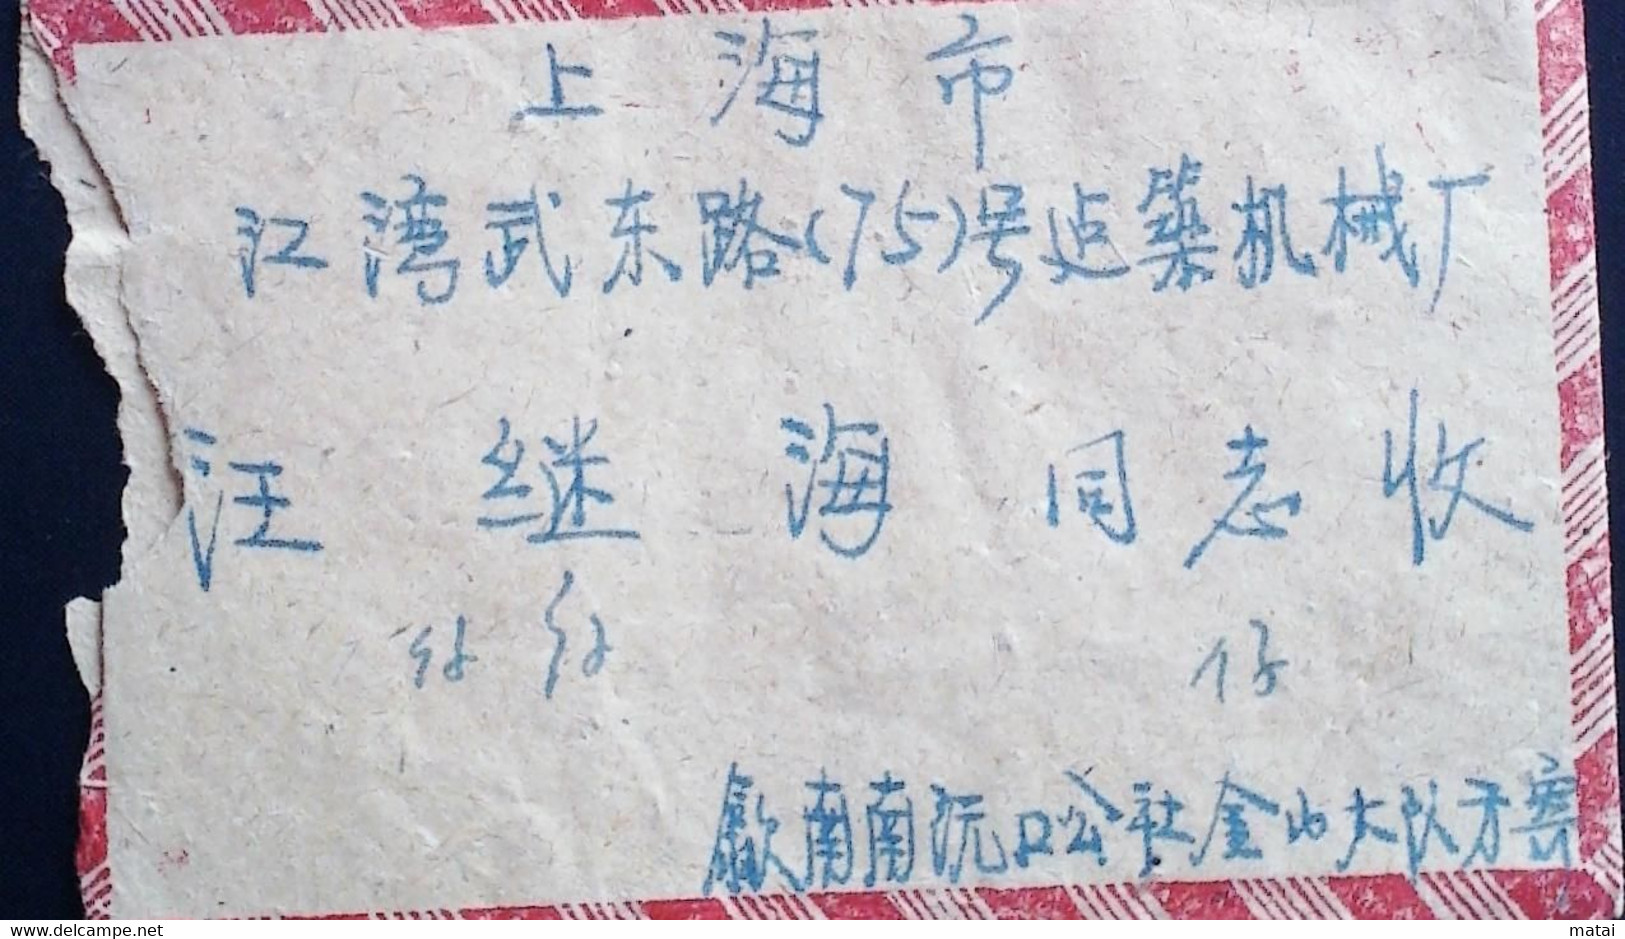 上海市
江湾武东路(75)号迠築机械厂
汪继海同志收
仔
歙南南沅口公社金山大队方寨
delcampe.net
matai